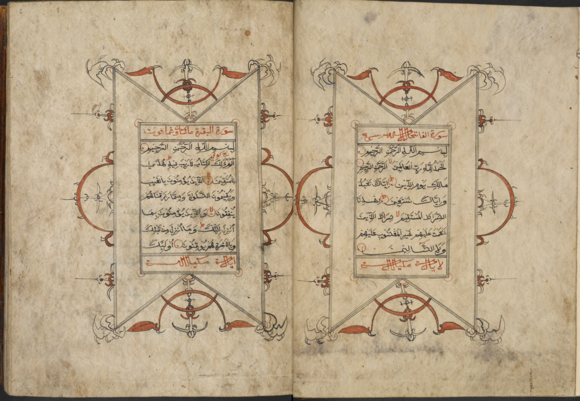 سورة الفاتحة
بسم الله الرحمن الرحيم
الحمد لله رب العالمين الرحمن الرحيم
مالك يوم الدين إياك نعبد
وإياك نستعين اهدنا
الصراط المستقيم صراط الذين
أنعمت عليهم غير المغضوب عليهم
ولا الضالين
سورة البقرة
بسم الله الرحمن الرحيم
الم ذلك الكتاب لا ريب فيه هدى
للمتقين الذين يؤمنون بالغيب
ويقيمون الصلوة ومما رزقناهم
ينفقون والذين يؤمنون بما
أنزل إليك وما أنزل من قبلك
وبالآخرة هم يوقنون أولئك